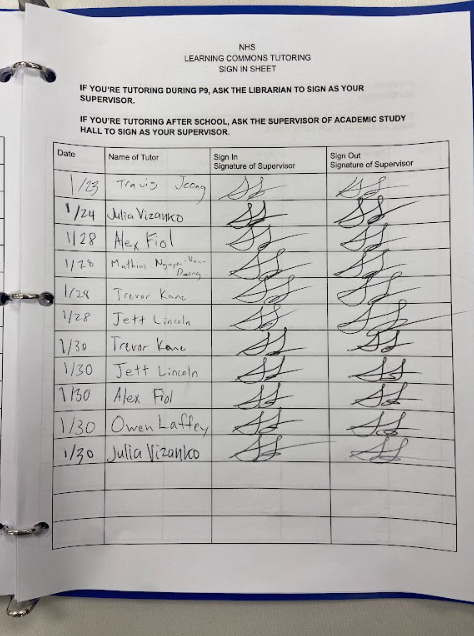 NHS
LEARNING COMMONS TUTORING
SIGN IN SHEET
IF YOU'RE TUTORING DURING P9, ASK THE LIBRARIAN TO SIGN AS YOUR
SUPERVISOR.
IF YOU'RE TUTORING AFTER SCHOOL, ASK THE SUPERVISOR OF ACADEMIC STUDY
HALL TO SIGN AS YOUR SUPERVISOR.
Date Name of Tutor Sign In Signature of Supervisor Sign Out Signature of Supervisor
1/23 Travis Jeong
1/24 Julia Vizanko
1/28 Alex Fiol
1/28 Mathias
1/28 Trevor Kane
1/28 Jett Lincoln
1/30 Trevor Kane
1/30 Jett Lincoln
1/30 Alex Fiol
1/30 Owen Laffey
1/30 Julia Vizanko